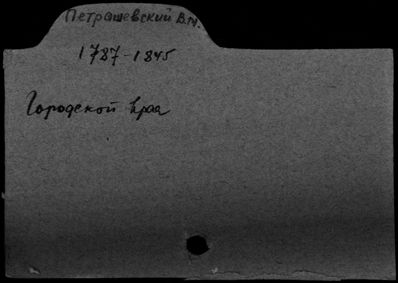 Петрашевский В.М.
1787-1845
Городской врач